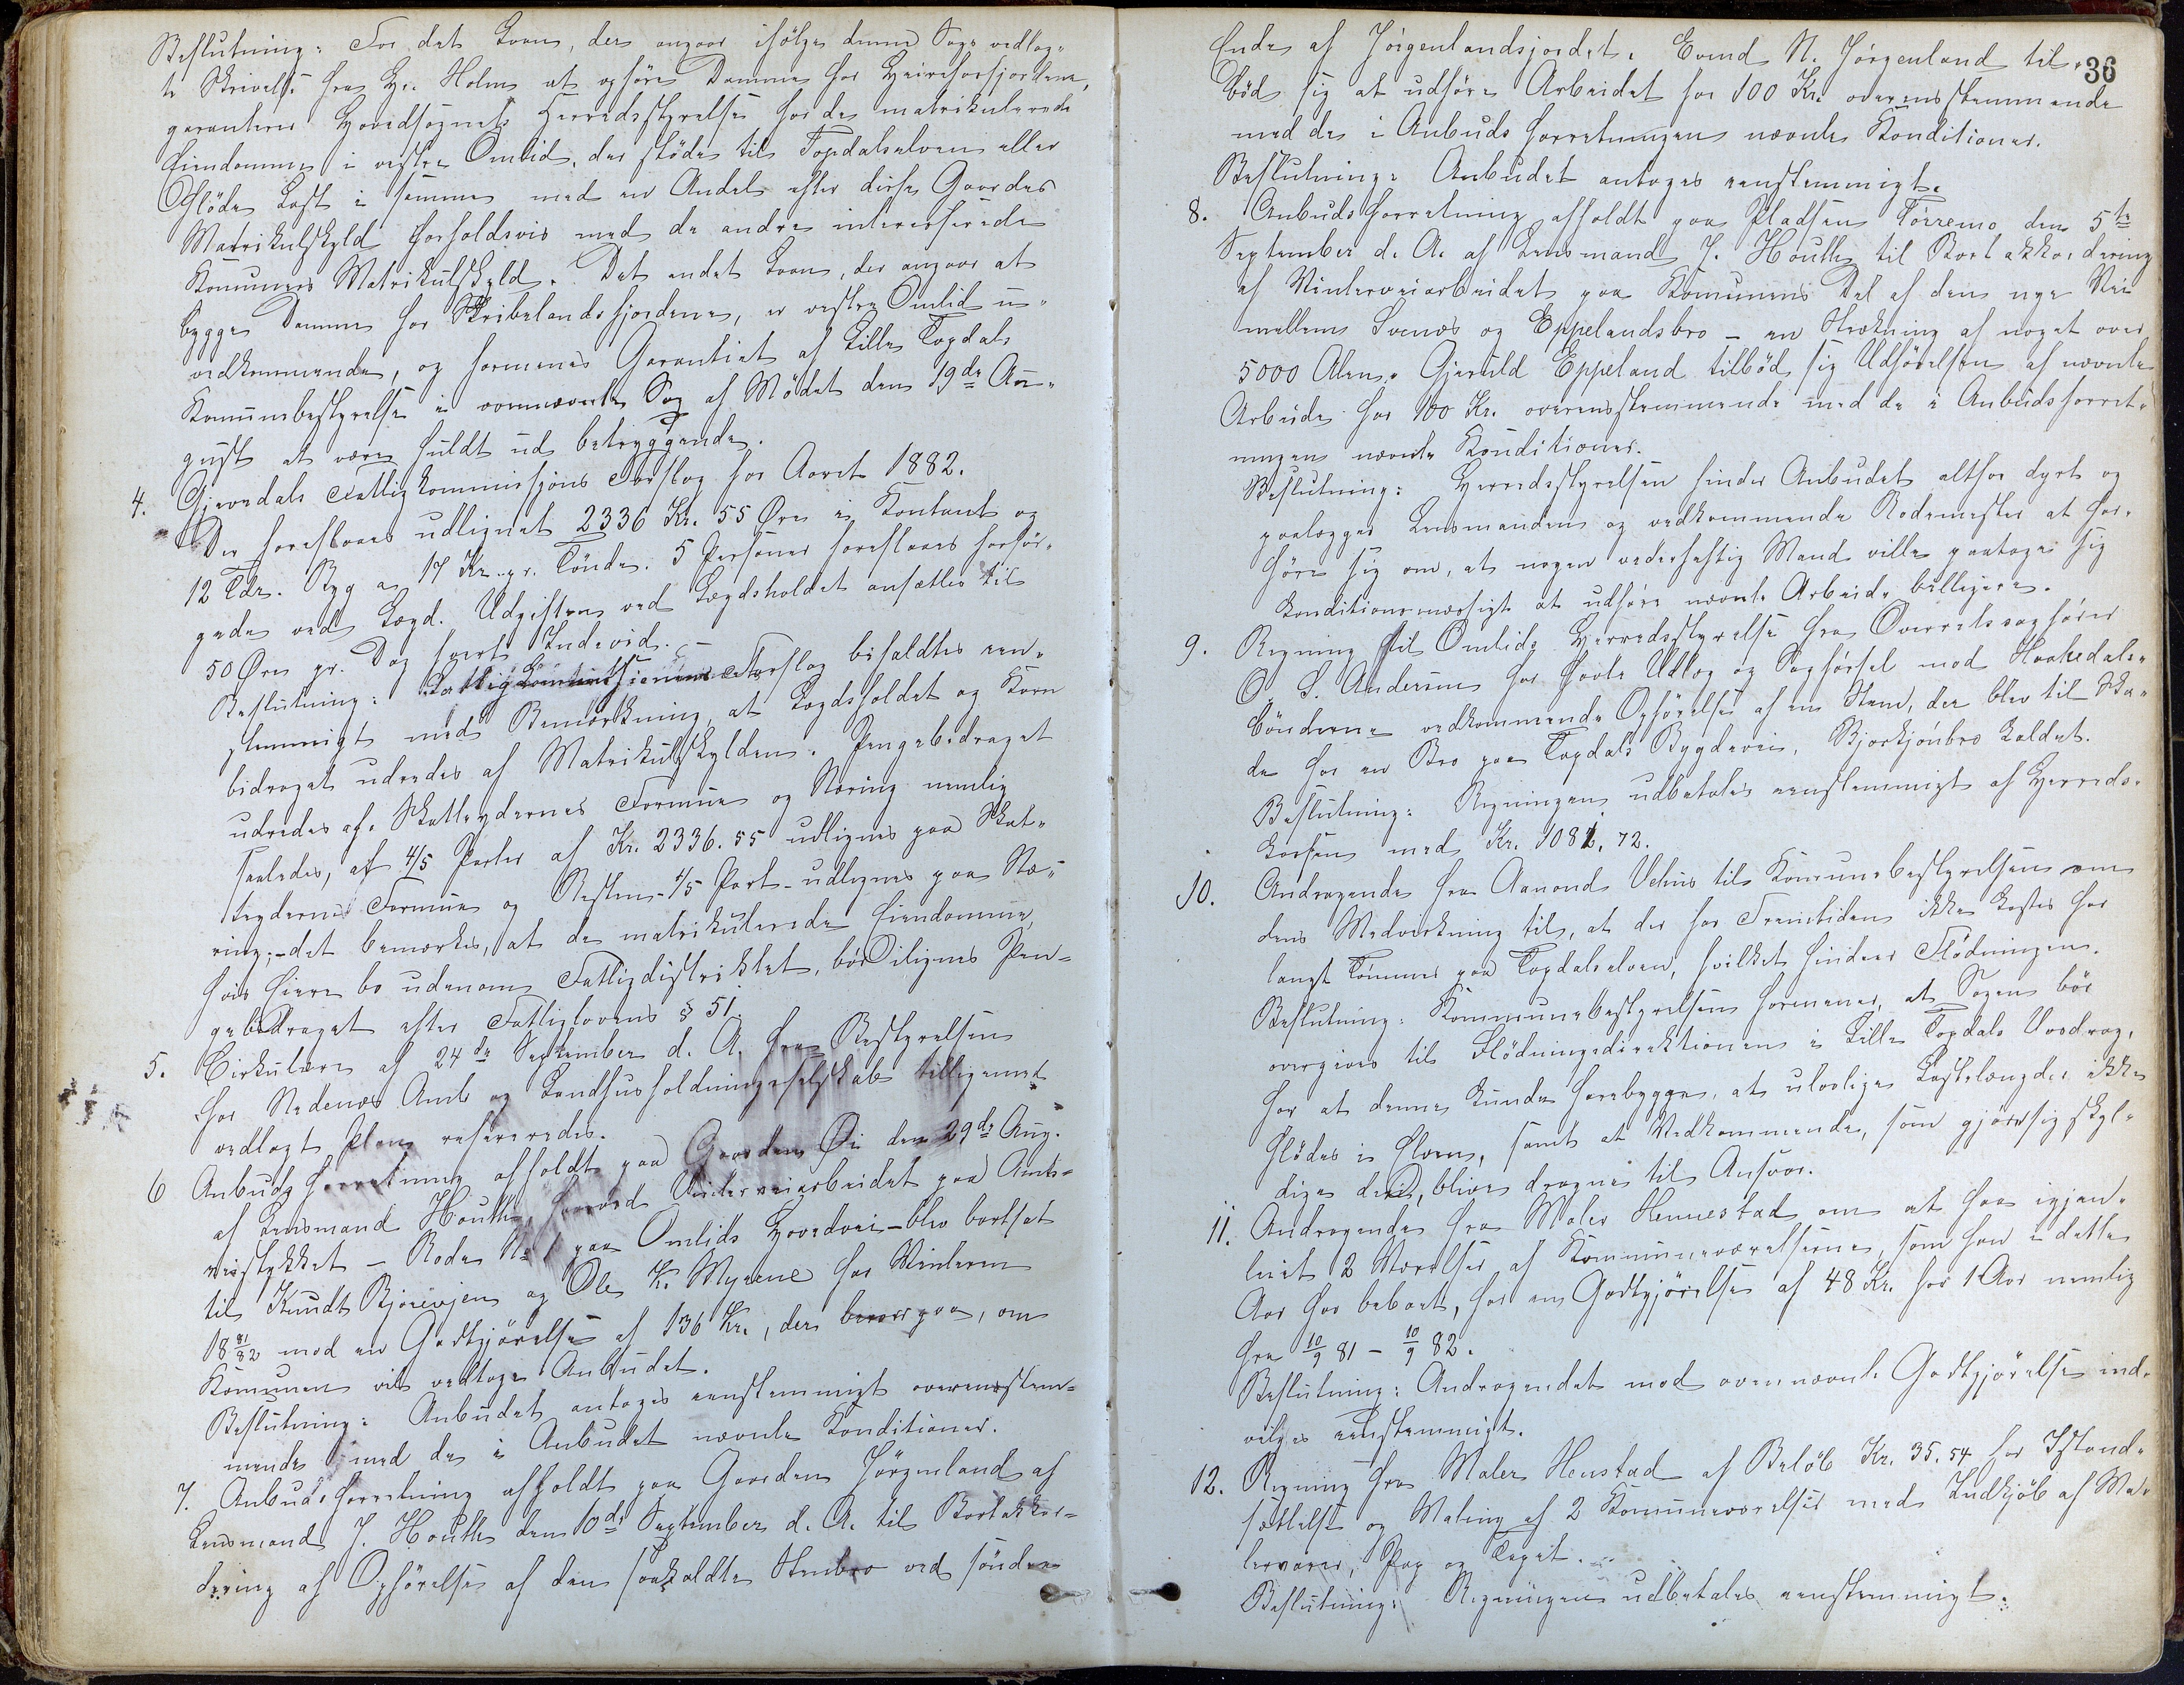 Beslutning: For det Laan, der angaar ifölge denne Sags vedlag-
te Skrivelse fra Hr. Holm at opföre Damme for Heireforsfjordene,
garanterer Hovedsognets Herredsstyrelse for de matrikulerede
Eiendomme i vestre Omlid, der støde til Topdalselven eller
flöde Last i samme med en Andel efter disse Gaardes
Matrikulskyld forholdsvis med de andre interesserede
Komuners Matrikulskyld. Det andet Laan, der angaar at
bygge Damme for Skribelandsfjordene, er vestre Omlid u-
vedkommende, og formenes Garantiet af Lille Topdals
Komunebestyrelse i ovennævnte Sag af Mödet den 19de Au-
gust at være fuldt ud betryggende.
4. Gjevedals Fattigkommissjons Forslag for Aaret 1882.
Der foreslaaes udlignet 2336 Kr. 55 Øre i Kontant og
12 Tdr. Byg a 17 Kr. pr. Tönde. 5 Personer foreslaaes forsör-
gede ved Lægd. Udgiften ved Lægdsholdet ansættes til
50 Øre pr. Dag hvert Individ. -
Beslutning: Fattigkommissionens Forslag bifaldtes een-
stemmigt med Bemærkning, at Lægdsholdet og Korn
bidraget udredes af Matrikulskylden. Pengebidraget
udredes af Skatteydernes Formue og Næring nemlig
saaledes, at 4/5 Parter af Kr. 2336.55 udlignes paa Skat-
teydernes Formue og Resten - 1/5 Part - udlignes paa Næ-
ring; - det bemærkes, at de matrikulerede Eiendomme,
hvis Eiere bo udenom Fattigdistriktet, bör ilignes Pen-
gebidraget efter Fattiglovens § 51.
5. Cirkulære af 24de September d. A. fra Bestyrelsen
for Nedenæs Amts Landhusholdningsselskab tilligemed
vedlagt Plan refereredes.
6 Anbudsforretning afholdt paa Gaarden Øi den 29de Aug.
af Lensmand Houth, hvorved Vinterveiarbeidet paa Amts-
veistykket - Rode No 1 paa Omlids Hovedvei - blev bortsat
til Knudt Bjorevjen og Ole K. Myrene for Vinteren
18 81/82 mod en Godtgjörelse af 136 Kr., der beroer paa, om
Komunen vil vedtage Anbudet.
Beslutning: Anbudet antages eenstemmigt overensstem-
mende med de i Anbudet nævnte Konditioner.
7. Anbudsforretning afholdt paa Gaarden Jörgenland af
Lensmand J. Houth den 10de September d. A. til Bortakkor-
dering af Opförelse af den saakaldte Stenbro ved söndre
36
Ende af Jörgenlandsjordet. Evind N. Jörgenland til-
böd sig at udföre Arbeidet for 100 Kr. overensstemmende
med de i Anbudsforretningen nævnte Konditioner.
Beslutning: Anbudet antages eenstemmigt.
8. Anbudsforretning afholdt paa Pladsen Törremo den 5te
September d. A. af Lensmand J. Houth til Bortakkordering
af Vinterveiarbeidet paa Komunens Del af den nye Vei
mellem Svenæs og Eppelandsbro - en Strækning af noget over
5000 Alen. Gjeruld Eppeland tilböd sig Udförelsen af nævnte
Arbeide for 100 Kr. overensstemmende med de i Anbudsforret-
ningen nævnte Konditioner.
Beslutning: Herredsstyrelsen finder Anbudet altfor dyrt og
paalægger Lensmanden og vedkommende Rodemester at for-
höre sig om, at nogen vederheftig Mand ville paatage sig
konditionsmæssigt at udföre nævnte Arbeide billigere.
9. Regning til Omlids Herredsstyrelse fra Overretssagförer
O. S. Andersen for havte Udlæg og Sagförsel mod Haakedals-
bönderne vedkommende Opförelse af en Stem, der blev til Ska-
de for en Bro paa Topdals Bygdevei, Bjorkjönbro kaldet.
Beslutning: Regningen udbetales eenstemmigt af Herreds-
kassen med Kr. 1081.72.
10. Andragende fra Aanond Vehus til Komunebestyrelsen om
dens Medvirkning til, at der for Fremtiden ikke kastes for
langt Tömmer paa Topdalselven, hvilket hindrer Flödningen.
Beslutning: Kommunebestyrelsen formener, at Sagen bör
overgives til Flödningsdirektionen i Lille Topdals Vasdrag,
for at denne kunde forebygge, at ulovlige Lastelængder ikke
flödes i Elven, samt at Vedkommende, som gjöre sig skyl-
dige deri, blive dragne til Ansvar.
11. Andragende fra Maler Hennestad om at faa igjen-
leiet 2 Værelser af Kommuneværelserne, som han i dette
Aar har beboet, for en Godtgjörelse af 48 Kr. for 1 Aar nemlig
fra 10/9 81 - 10/9 82.
Beslutning: Andragendet mod ovennævnte Godtgjörelse ind-
vilges eenstemmigt.
12. Regning fra Maler Henstad af Belöb Kr. 35.54 for Istand-
sættelse og Maling af 2 Komuneværelser med Indkjöb af Ma-
lervarer, Pap og Tapet.
Beslutning: Regningen udbetales eenstemmigt.